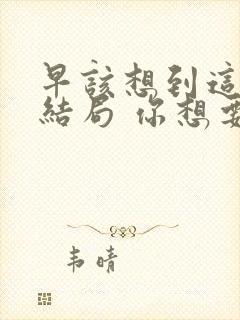 早該想到這
結局 你想要
韦晴